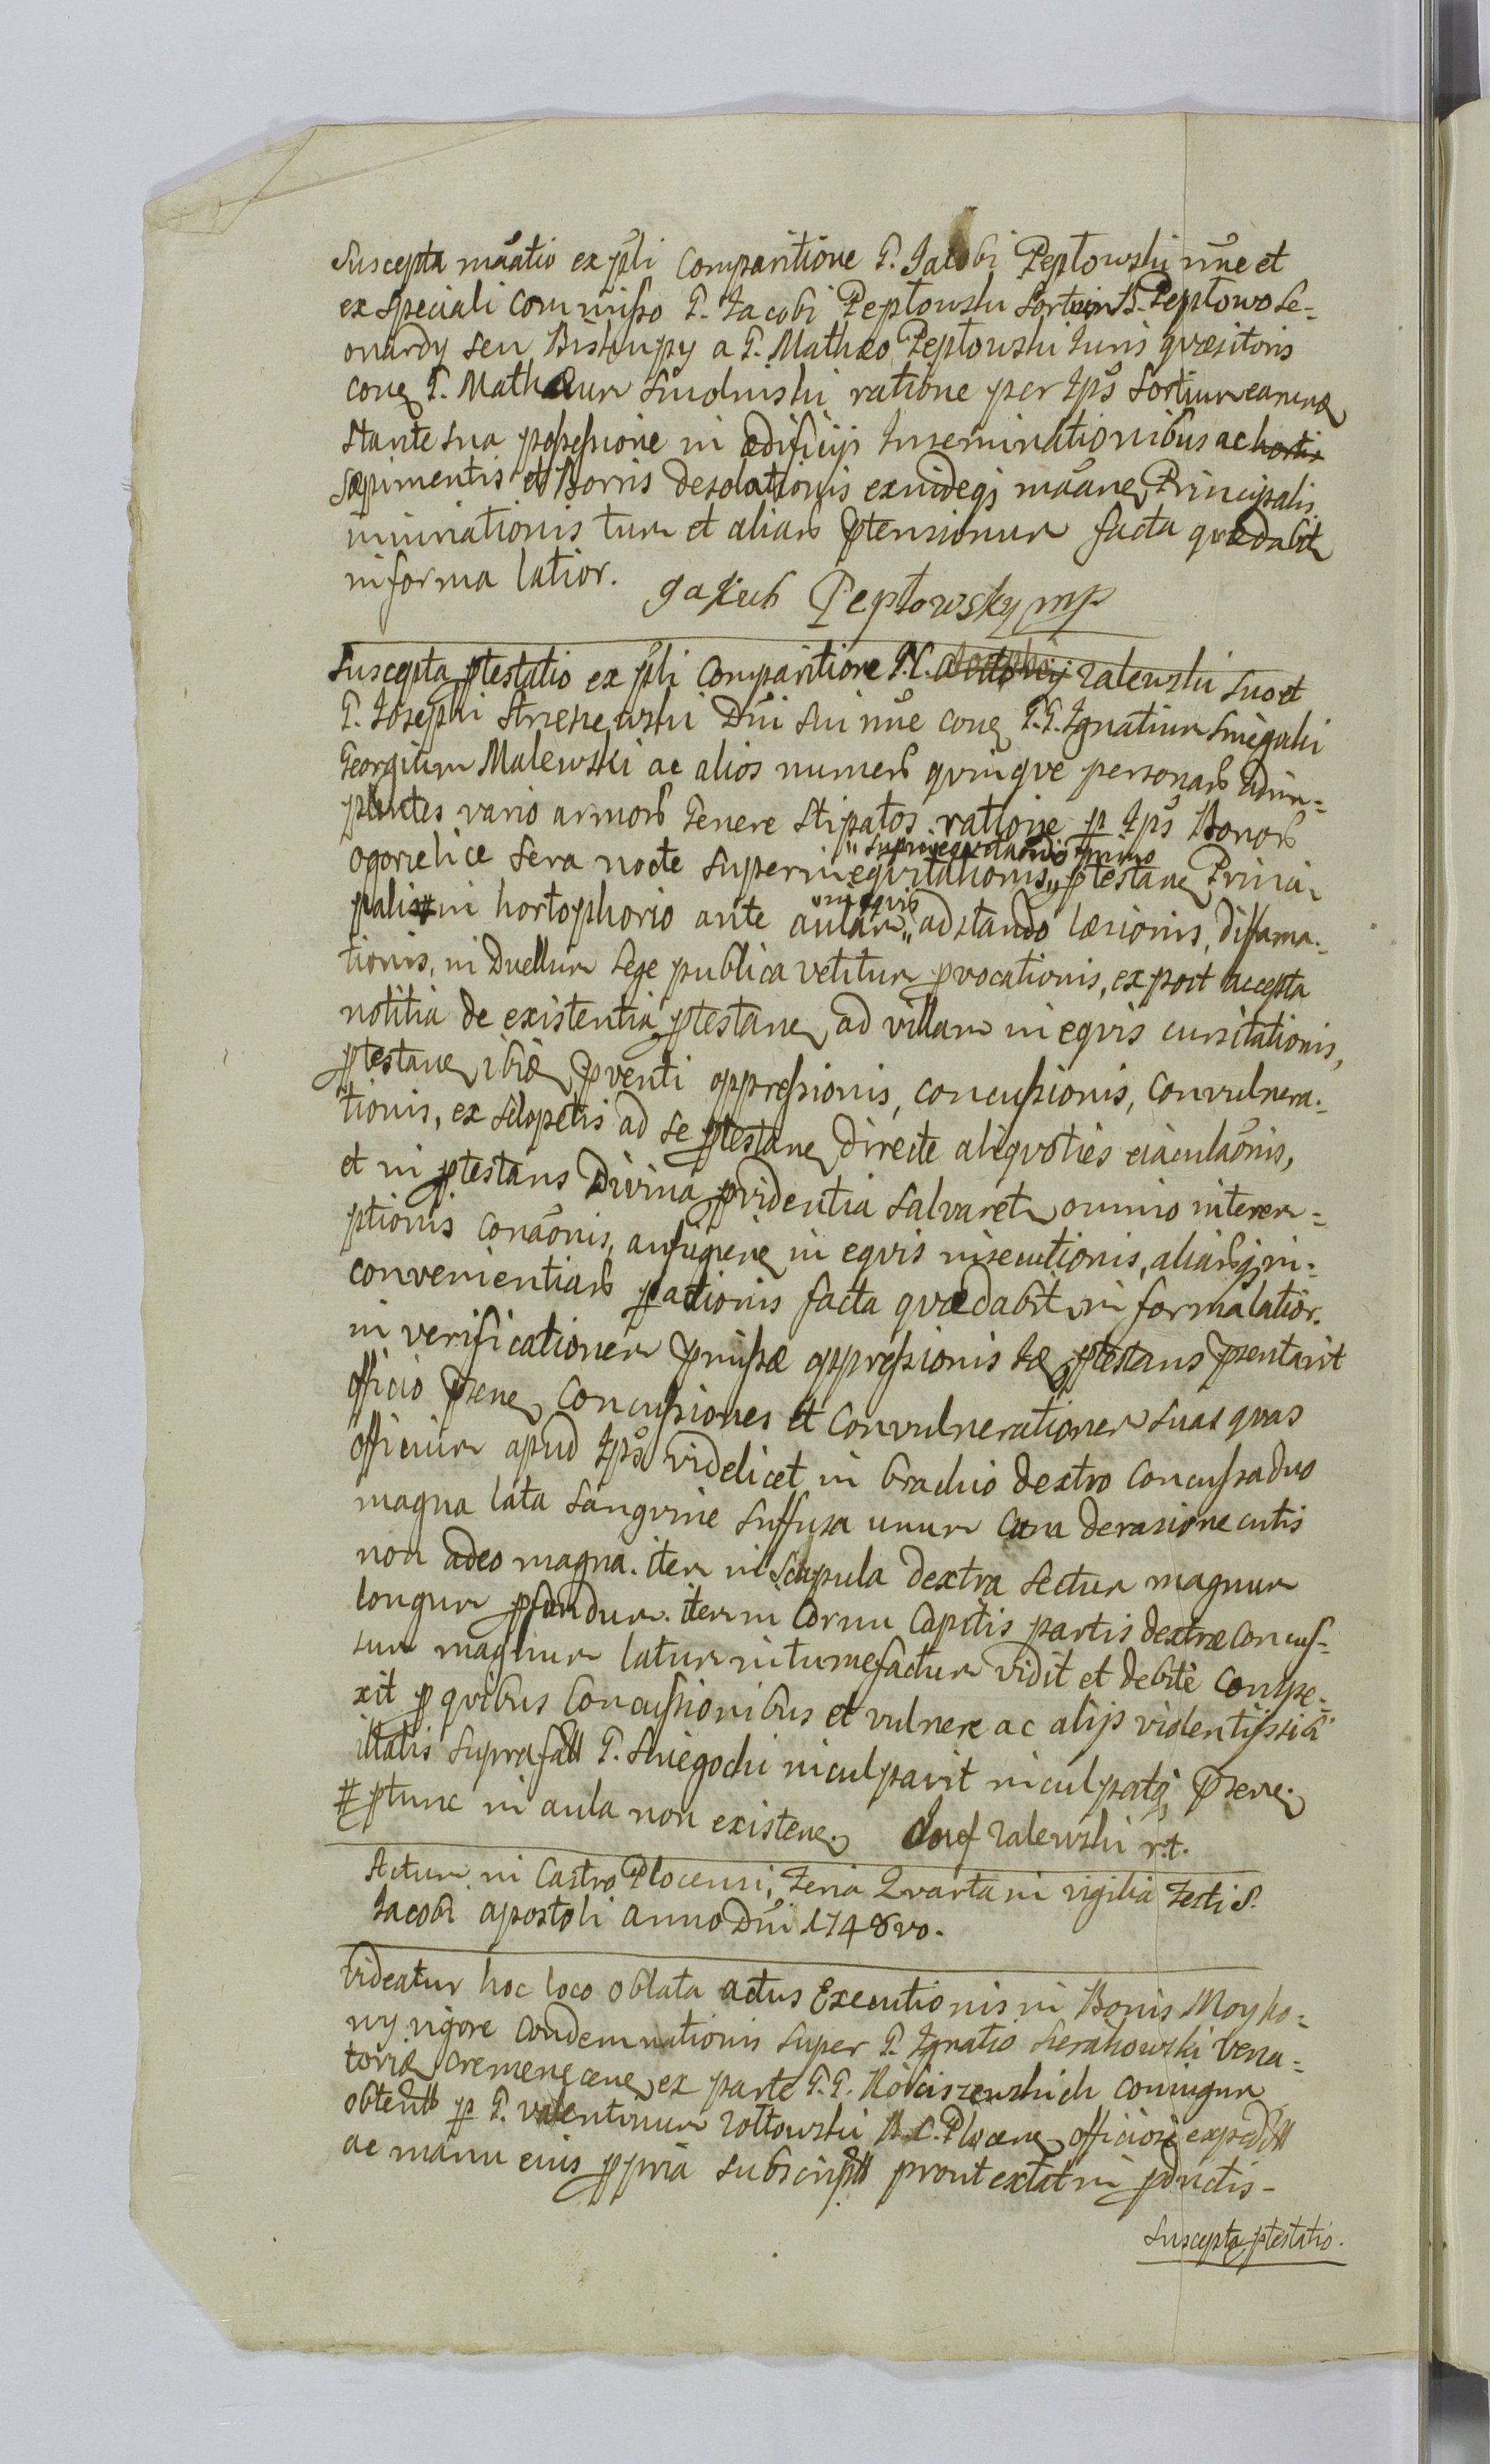 Suscepta mãatio ex pñli Comparitione G. Jacobi Peptowski nñe et
ex speciali commisso G. Jacobi Peptowski Sortium B. Peptowo Le=
onardy seu Biskupy a G. Mathæo Peptowski Juris quæsitoris
cong G. Mathæum Smolinski ratione per Ips Sortium earung
stante sua possessione in ædificijs Inseminationibus ac hortis
sæpimentis et Borris desolationis exindeqz mãane Principalis
iniuriationis tum et aliarb ptensionum facta quædabit
in forma latior. Jakub Peptowsky mp
Suscepta ptestatio ex pñli Comparitione G. Zalewski suo et
G. Josephi Strzeszewski Dñi sui nñe cong G.G. Ignatium Sniegocki
Georgium Malewski ac alios numero quinque personarb adim=
plentes vario armorb Genere stipatos. ratione p Ips Bonorb
Ogorzelice sera nocte superinequitationis, ptestane Princi
palis # in hortophorio ante aulam „in equis„ adstando læsionis, diffama=
tionis, in Duellum Lege publica vetitum pvocationis, ex post accepta
notitia de existentia ptestane, ad villam in equis cursitationis,
ptestane, ibid pventi oppressionis, concussionis, convulnera=
tionis, ex sclopetis ad se ptestane directe aliquoties eiaculaõnis,
et ni ptestans Divina pvidentia salvaret omnio interem=
ptionis conaõnis, aufugiene in equis insecutionis, aliarbqz in=
convenientiarb pactionis facta quædabit in forma latior.
in verificationem pmissæ oppressionis Ide ptestans psentavit
officio psene Concussiones et Convulnerationem suas quas
officium apud Ips videlicet in brachio dextro Concussa duo
magna lata sangvine suffusa unum cum derasione cutis
non adeo magna. item in scapula dextra sectum magnum
longum pfundum. item in Cornu Capitis partis dextræ concus=
sum magnum latum intumefactum vidit et debite conspe=
xit p quibus Concussionibus et vulnere ac alijs violentijs sibi
illatis suprafatt G. Sniegocki inculpavit inculpatqz psene.
# ptunc in aula non existene. Josef Zalewski r.t.
Actum in Castro Plocensi, Feria Quarta in vigilia Festi S.
Jacobi apostoli anno Dñi 1748vo.
Videatur hoc loco oblata actus Executionis in Bonis Moyko=
wy vigore Condemnationis super G. Ignatio Sierakowski Vena=
toride Cremenecene ex parte G.G. Kościszewskich Coniugum
obtent p G. Valentinum Zottowski B.C. Plocene officiose expedit
ac manu eius ppria subscript prout extat in pductis -
Suscepta ptestatio.